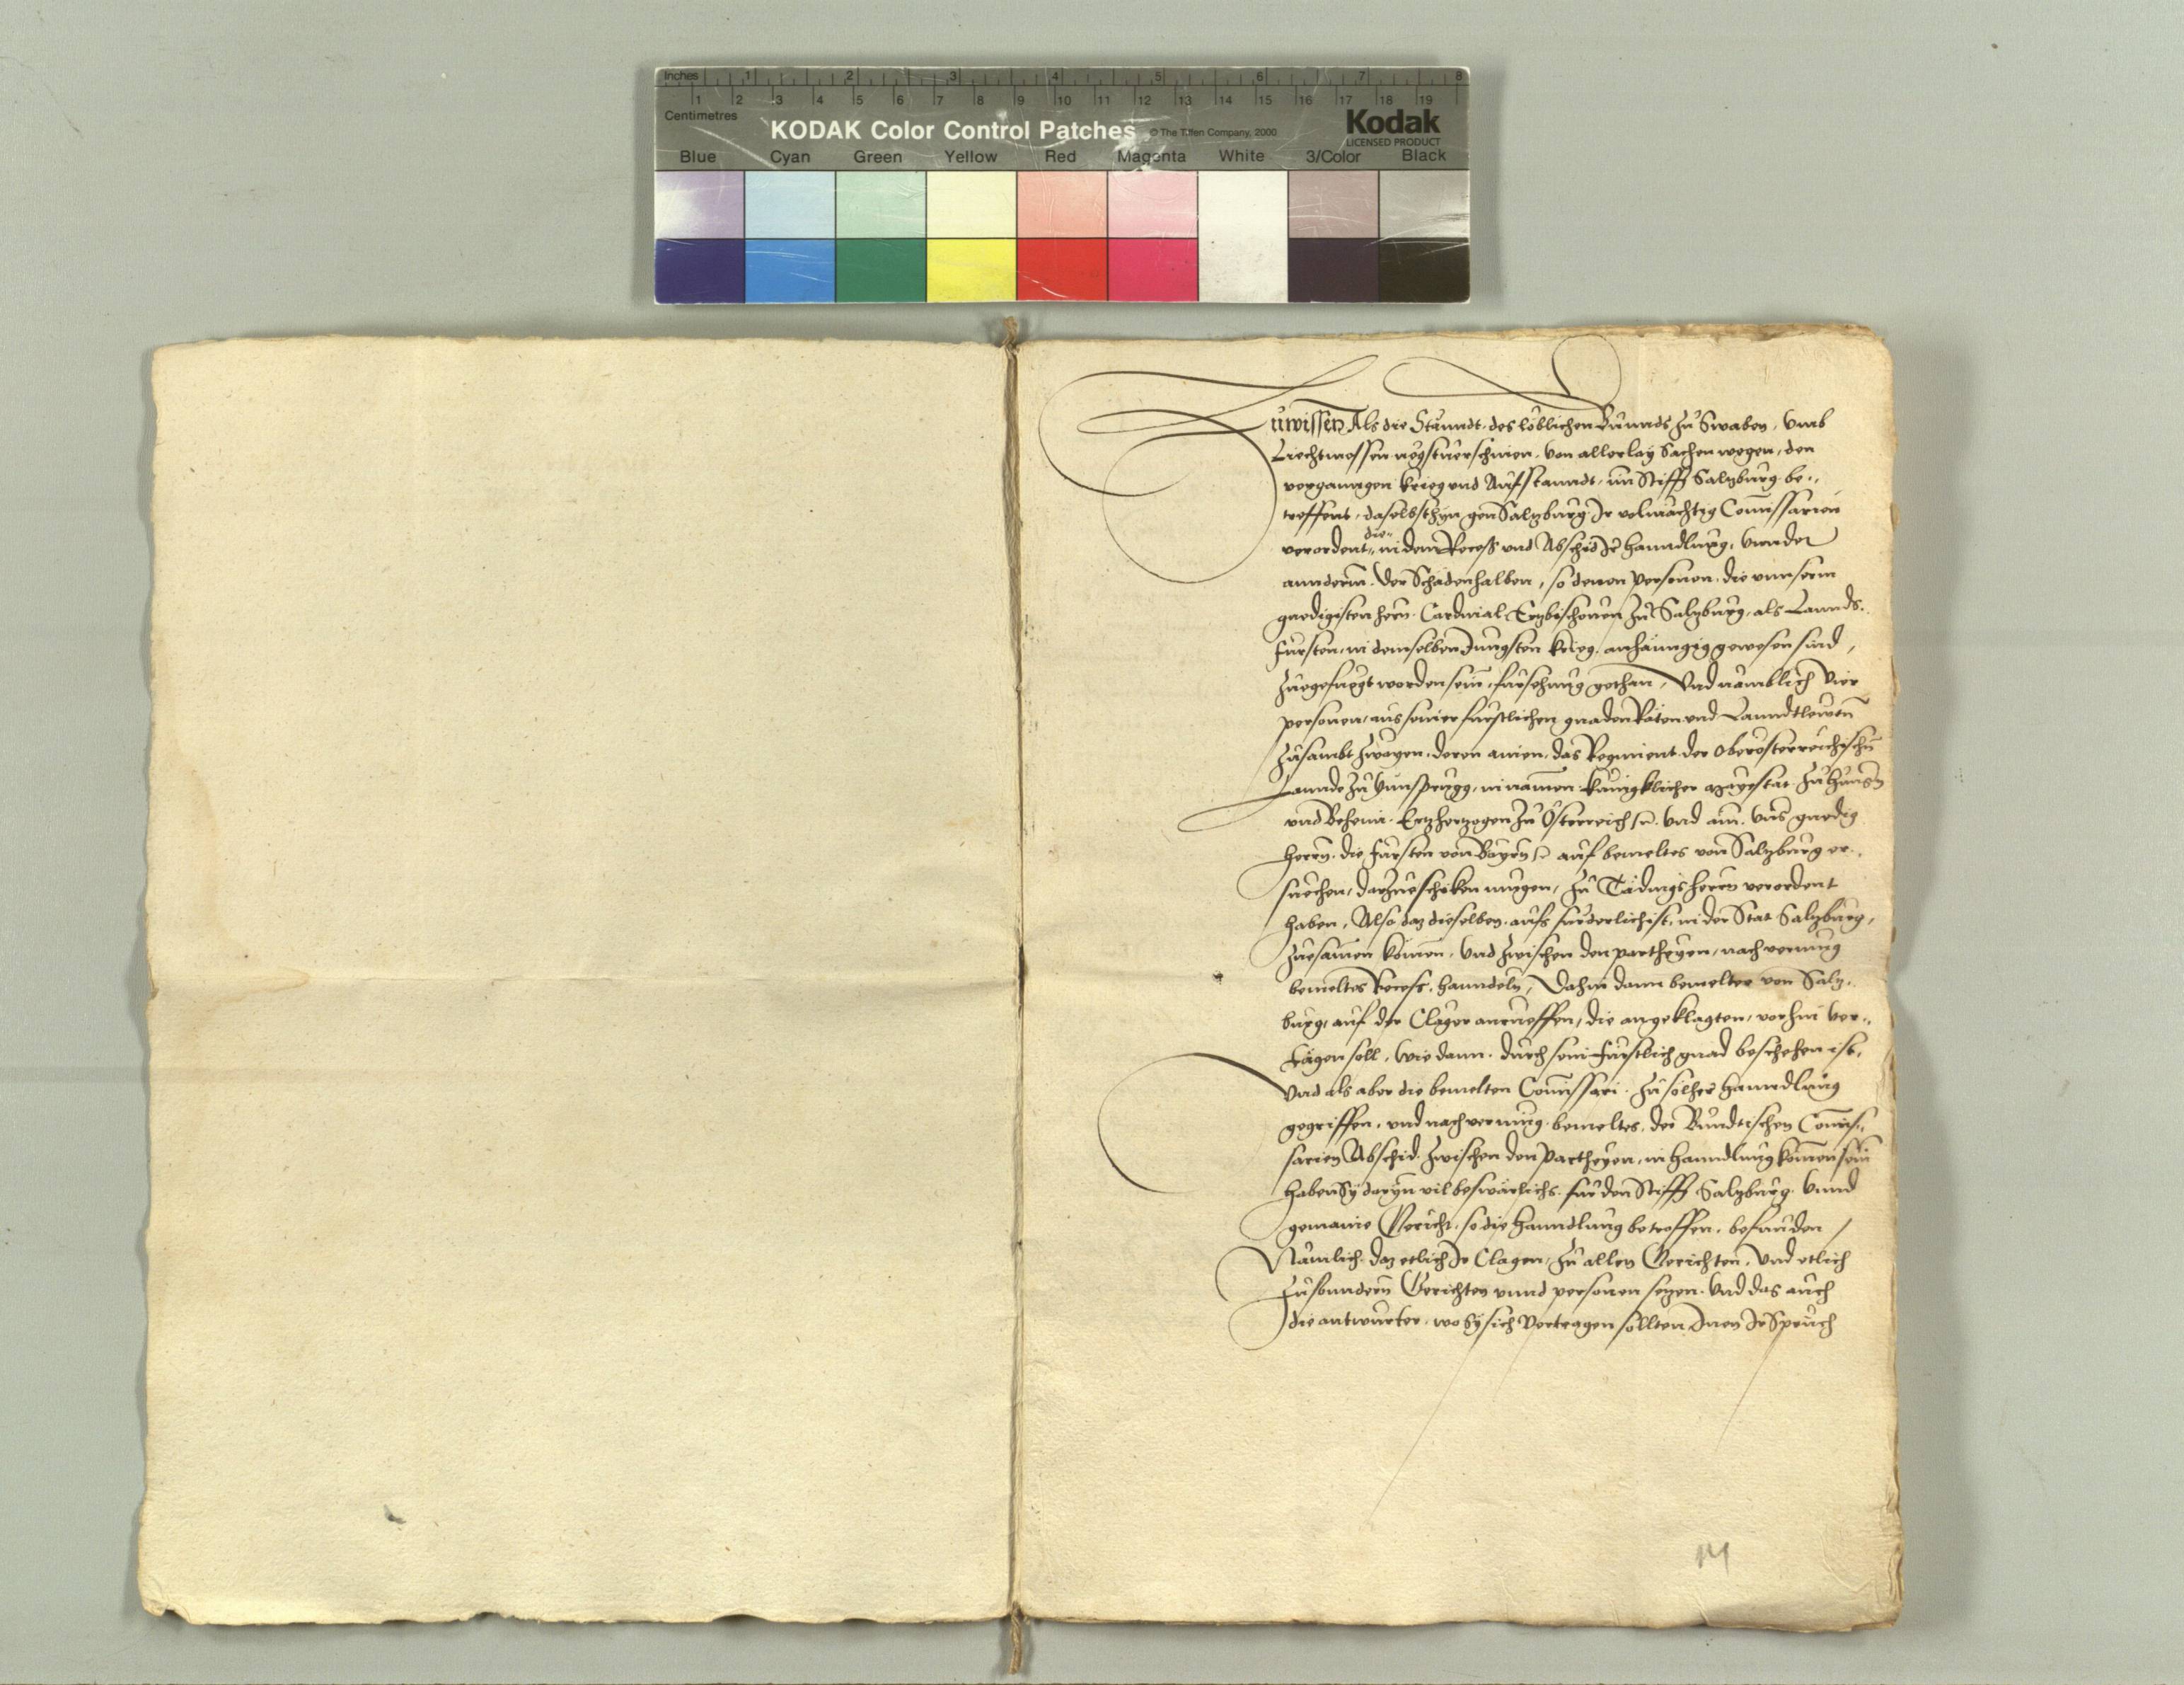 Inches 1 2 3 4 5 6 7 8
1 2 3 4 5 6 7 8 9 10 11 12 13 14 15 16 17 18 19
Centimetres
KODAK Color Control Patches © The Tiffen Company, 2000 Kodak
LICENSED PRODUCT
Blue Cyan Green Yellow Red Magenta White 3/Color Black
Zuwissen Als die Stännd des löblichen Bunnds zu Swaben, vmb
Liechtmessen negstuerschinen, von allerlay Sachen wegen, den
vergangen krieg vnd Aufstanndt, im Stifft Salzburg be„
treffent, daselbsthin gen Salzburg Ir volmächtig Comissarien
die
verordent„ in dem Recess vnd Abschid Ir hanndlung, vnnder
annderm. der Schäden halben, so denen personen, die vnnserm
gnedigisten hern. Cardinal Erzbischouen zu Salzburg, als Lannds„
fürsten, in demselben Jungsten krieg, anhänngig gewesen sind,
zuegefuegt worden sein, fürsehung gethan, Vnd nämblich Vier
personen, aus seiner fürstlichen gnaden Räten vnd Lanndtlewten
zusambt zwayen, deren ainen, das Regiment der oberösterreichischen
Lannde zu Ynnsprugg, in namen künigklicher Mayestat zu Hungern
vnd Behem. Erzherzogen zu Österreich etc. Vnd ain. vnns gnedig
herrn. die fürsten von Bayrn etc. auf bemeltes von Salzburg er„
suechen, darzue schiken mugen, zu Tädingsherrn verordent
haben, Also daz dieselben, aufs fürderlichist, in der Stat Salzburg,
zuesamen komen, Vnd zwischen den partheyen, nach vermug
bemeltes Recess, hanndeln, Dahin dann bemelter von Salz„
burg, auf der Clager anrueffen, die angeklagten, vorhin ver„
tägen soll, wie dann. durch sein fürstlich gnad beschehen ist,
Vnd als aber die bemelten Comissari. zu solher hanndlung
gegriffen, vnd nach vermug bemeltes, der Bundtischen Comis„
sarien Abschid. zwischen den partheyen, in hanndlung komen sein
haben Sy daryn vil beswärlichs für den Stifft Salzburg Vnnd
gemaine Gericht, so die hanndlung betreffen, befunden,
Nämlich daz etlich Ir Clagen, zu allen Gerichten, Vnd etlich
zu sonndern Gerichten vnnd personen setzen. Vnd das auch
die antwurter, wo Sy sich Vertragen sollten Inen Ir Spruch